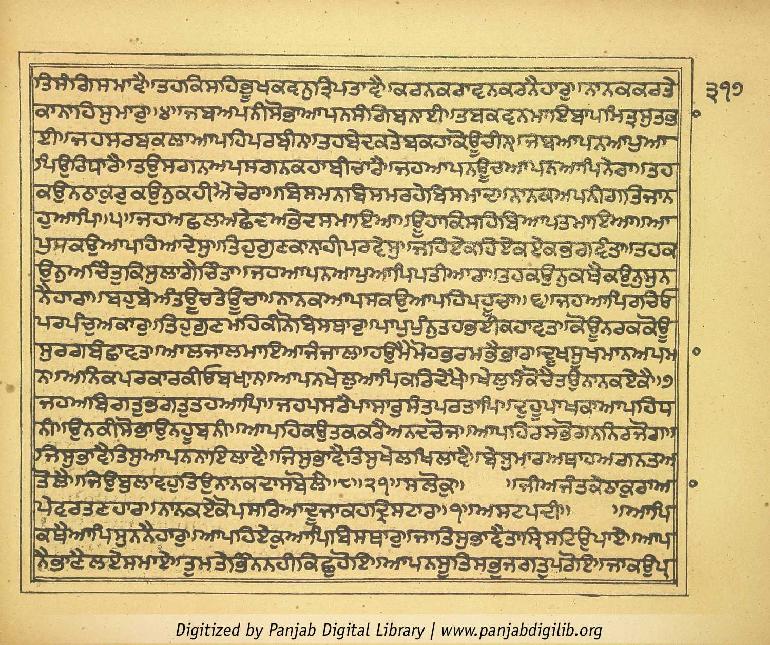 ਤਿ ਸੰਗਿ ਸਮਾਵੈ ॥ ਤਹ ਕਿਸਹਿ ਭੂਖ ਕਵਨੁ ਤ੍ਰਿਪਤਾਵੈ ॥ ਕਰਨ ਕਰਾਵਨ ਕਰਨੈਹਾਰੁ ॥ ਨਾਨਕ ਕਰਤੇ
ਕਾ ਨਾਹਿ ਸੁਮਾਰੁ ॥੪॥ ਜਬ ਅਪਨੀ ਸੋਭਾ ਆਪਨ ਸੰਗਿ ਬਨਾਈ ॥ ਤਬ ਕਵਨ ਮਾਇ ਬਾਪ ਮਿਤ੍ਰ ਸੁਤ ਭਾ
ਈ ॥ ਜਹ ਸਰਬ ਕਲਾ ਆਪਹਿ ਪਰਬੀਨ ॥ ਤਹ ਬੇਦ ਕਤੇਬ ਕਹਾ ਕੋਊ ਚੀਨ ॥ ਜਬ ਆਪਨ ਆਪੁ ਆ
ਪਿ ਉਰਿ ਧਾਰੈ ॥ ਤਉ ਸਗਨ ਅਪਸਗਨ ਕਹਾ ਬੀਚਾਰੈ ॥ ਜਹ ਆਪਨ ਊਚ ਆਪਨ ਆਪਿ ਨੇਰਾ ॥ ਤਹ
ਕਉਨ ਠਾਕੁਰੁ ਕਉਨੁ ਕਹੀਐ ਚੇਰਾ ॥ ਬਿਸਮਨ ਬਿਸਮ ਰਹੇ ਬਿਸਮਾਦ ॥ ਨਾਨਕ ਅਪਨੀ ਗਤਿ ਜਾਨ
ਹੁ ਆਪਿ ॥੫॥ ਜਹ ਅਛਲ ਅਛੇਦ ਅਭੇਦ ਸਮਾਇਆ ॥ ਊਹਾ ਕਿਸਹਿ ਬਿਆਪਤ ਮਾਇਆ ॥ ਆ
ਪਸ ਕਉ ਆਪਹਿ ਆਦੇਸੁ ॥ ਤਿਹੁ ਗੁਣ ਕਾ ਨਾਹੀ ਪਰਵੇਸੁ ॥ ਜਹ ਏਕਹਿ ਏਕ ਏਕ ਭਗਵੰਤਾ ॥ ਤਹ ਕ
ਉਨੁ ਅਚਿੰਤੁ ਕਿਸੁ ਲਾਗੈ ਚਿੰਤਾ ॥ ਜਹ ਆਪਨ ਆਪੁ ਆਪਿ ਪਤੀਆਰਾ ॥ ਤਹ ਕਉਨੁ ਕਥੈ ਕਉਨੁ ਸੁਨ
ਨੈਹਾਰਾ ॥ ਬਹੁ ਬੇਅੰਤ ਊਚ ਤੇ ਊਚਾ ॥ ਨਾਨਕ ਆਪਸ ਕਉ ਆਪਹਿ ਪਹੂਚਾ ॥੬॥ ਜਹ ਆਪਿ ਰਚਿਓ
ਪਰਪੰਚੁ ਅਕਾਰੁ ॥ ਤਿਹੁ ਗੁਣ ਮਹਿ ਕੀਨੋ ਬਿਸਥਾਰੁ ॥ ਪਾਪੁ ਪੁੰਨੁ ਤਹ ਭਈ ਕਹਾਵਤ ॥ ਕੋਊ ਨਰਕ ਕੋਊ
ਸੁਰਗ ਬੰਛਾਵਤ ॥ ਆਲ ਜਾਲ ਮਾਇਆ ਜੰਜਾਲ ॥ ਹਉਮੈ ਮੋਹ ਭਰਮ ਭੈ ਭਾਰ ॥ ਦੂਖ ਸੂਖ ਮਾਨ ਅਪਮਾ
ਨ ॥ ਅਨਿਕ ਪ੍ਰਕਾਰ ਕੀਓ ਬਖ੍ਯਾਨ ॥ ਆਪਨ ਖੇਲੁ ਆਪਿ ਕਰਿ ਦੇਖੈ ॥ ਖੇਲੁ ਸੰਕੋਚੈ ਤਉ ਨਾਨਕ ਏਕੈ ॥੭॥
ਜਹ ਅਬਿਗਤੁ ਭਗਤੁ ਤਹ ਆਪਿ ॥ ਜਹ ਪਸਰੈ ਪਾਸਾਰੁ ਸੰਤ ਪਰਤਾਪਿ ॥ ਦੁਹੂ ਪਾਖ ਕਾ ਆਪਹਿ ਧ
ਨੀ ॥ ਉਨ ਕੀ ਸੋਭਾ ਉਨਹੂ ਬਨੀ ॥ ਆਪਹਿ ਕਉਤਕ ਕਰੈ ਅਨਦ ਚੋਜ ॥ ਆਪਹਿ ਰਸ ਭੋਗਨ ਨਿਰਜੋਗ ॥
ਜਿਸੁ ਭਾਵੈ ਤਿਸੁ ਆਪਨ ਨਾਇ ਲਾਵੈ ॥ ਜਿਸੁ ਭਾਵੈ ਤਿਸੁ ਖੇਲ ਖਿਲਾਵੈ ॥ ਬੇਸੁਮਾਰ ਅਥਾਹ ਅਗਨਤ ਅ
ਤੋਲੈ ॥ ਜਿਉ ਬੁਲਾਵਹੁ ਤਿਉ ਨਾਨਕ ਦਾਸ ਬੋਲੈ ॥੮॥੨੧॥ ਸਲੋਕੁ ॥ ਜੀਅ ਜੰਤ ਕੇ ਠਾਕੁਰਾ ਆ
ਪੇ ਵਰਤਣਹਾਰ ॥ ਨਾਨਕ ਏਕੋ ਪਸਰਿਆ ਦੂਜਾ ਕਹ ਦ੍ਰਿਸਟਾਰ ॥੧॥ ਅਸਟਪਦੀ ॥ ਆਪਿ
ਕਥੈ ਆਪਿ ਸੁਨਨੈਹਾਰੁ ॥ ਆਪਹਿ ਏਕੁ ਆਪਿ ਬਿਸਥਾਰੁ ॥ ਜਾ ਤਿਸੁ ਭਾਵੈ ਤਾ ਸ੍ਰਿਸਟਿ ਉਪਾਏ ॥ ਆਪ
ਨੈ ਭਾਣੈ ਲਏ ਸਮਾਏ ॥ ਤੁਮ ਤੇ ਭਿੰਨ ਨਹੀ ਕਿਛੁ ਹੋਇ ॥ ਆਪਨ ਸੂਤਿ ਸਭੁ ਜਗਤੁ ਪਰੋਇ ॥ ਜਾ ਕਉ ਪ੍
੩੧੭
Digitized by Panjab Digital Library | www.panjabdigilib.org